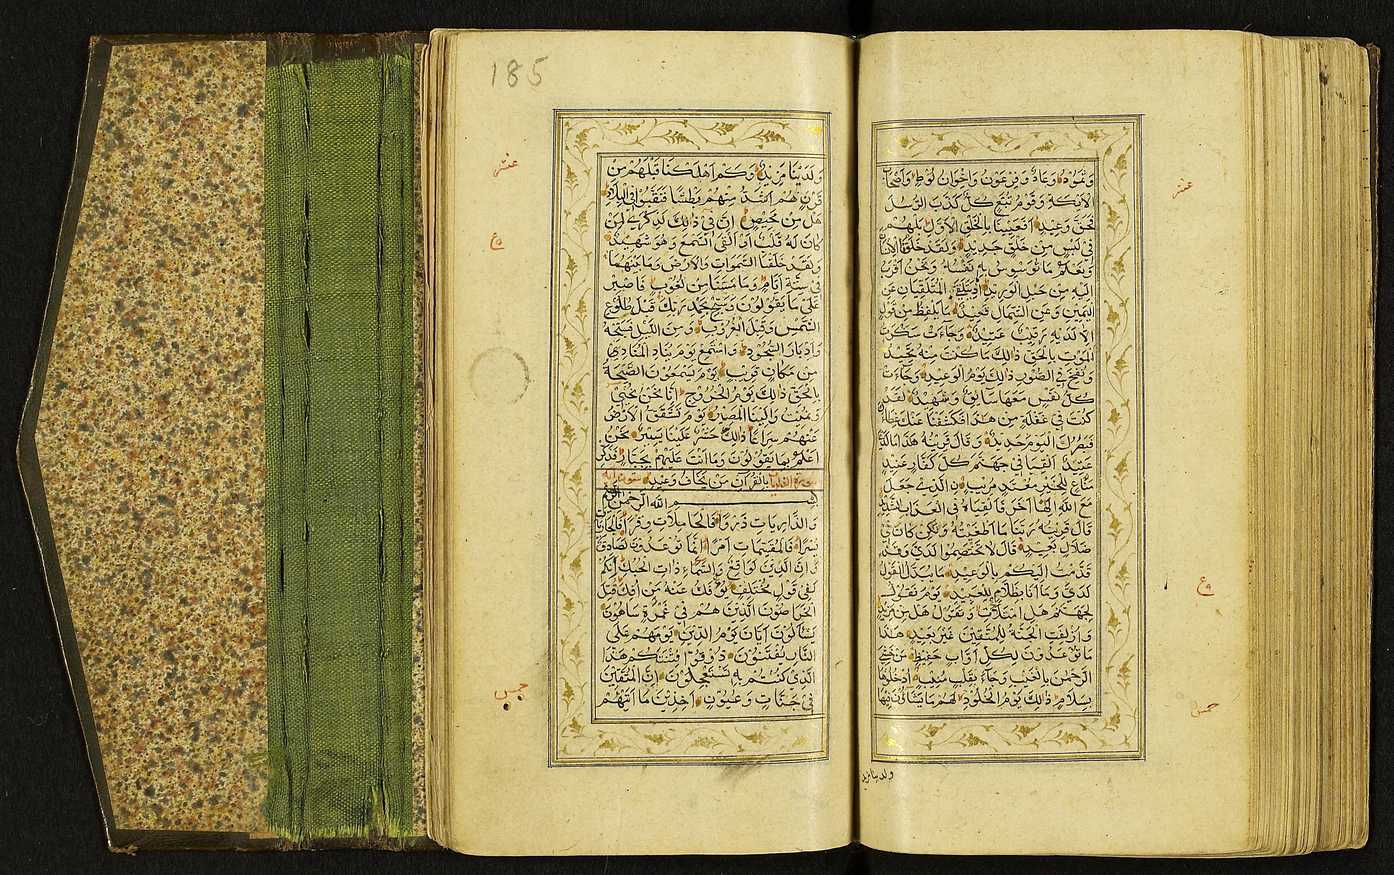 وَثَمُودُ وَعَادٌ وَفِرْعَوْنُ وَاِخْوَانُ لُوطٍ وَاَصْحَابُ
الْاَيْكَةِ وَقَوْمُ تُبَّعٍ كُلٌّ كَذَّبَ الرُّسُلَ
فَحَقَّ وَعِيدِ اَفَعَيِينَا بِالْخَلْقِ الْاَوَّلِ بَلْ هُمْ
فِى لَبْسٍ مِنْ خَلْقٍ جَدِيدٍ وَلَقَدْ خَلَقْنَا الْاِنْسَانَ
وَنَعْلَمُ مَا تُوَسْوِسُ بِهِ نَفْسُهُ وَنَحْنُ اَقْرَبُ
اِلَيْهِ مِنْ حَبْلِ الْوَرِيدِ اِذْ يَتَلَقَّى الْمُتَلَقِّيَانِ عَنِ
الْيَمِينِ وَعَنِ الشِّمَالِ قَعِيدٌ مَا يَلْفِظُ مِنْ قَوْلٍ
اِلَّا لَدَيْهِ رَقِيبٌ عَتِيدٌ وَجَاءَتْ سَكْرَةُ
الْمَوْتِ بِالْحَقِّ ذَالِكَ مَا كُنْتَ مِنْهُ تَحِيدُ
وَنُفِخَ فِى الصُّورِ ذَالِكَ يَوْمُ الْوَعِيدِ وَجَاءَتْ
كُلُّ نَفْسٍ مَعَهَا سَائِقٌ وَشَهِيدٌ لَقَدْ
كُنْتَ فِى غَفْلَةٍ مِنْ هَذَا فَكَشَفْنَا عَنْكَ غِطَاءَكَ
فَبَصَرُكَ الْيَوْمَ حَدِيدٌ وَقَالَ قَرِينُهُ هَذَا مَا لَدَىَّ
عَتِيدٌ اَلْقِيَا فِى جَهَنَّمَ كُلَّ كَفَّارٍ عَنِيدٍ
مَنَّاعٍ لِلْخَيْرِ مُعْتَدٍ مُرِيبٍ نِ الَّذِى جَعَلَ
مَعَ اللّٰهِ اِلٰهًا اٰخَرَ فَاَلْقِيَاهُ فِى الْعَذَابِ الشَّدِيدِ
قَالَ قَرِينُهُ رَبَّنَا مَا اَطْغَيْتُهُ وَلٰكِنْ كَانَ فِى
ضَلَالٍ بَعِيدٍ قَالَ لَا تَخْتَصِمُوا لَدَىَّ وَقَدْ
قَدَّمْتُ اِلَيْكُمْ بِالْوَعِيدِ مَا يُبَدَّلُ الْقَوْلُ
لَدَىَّ وَمَا اَنَا بِظَلَّامٍ لِلْعَبِيدِ يَوْمَ نَقُولُ
لِجَهَنَّمَ هَلِ امْتَلَأْتِ وَتَقُولُ هَلْ مِنْ مَزِيدٍ
وَاُزْلِفَتِ الْجَنَّةُ لِلْمُتَّقِينَ غَيْرَ بَعِيدٍ هَذَا
مَا تُوعَدُونَ لِكُلِّ اَوَّابٍ حَفِيظٍ مَنْ خَشِىَ
الرَّحْمٰنَ بِالْغَيْبِ وَجَاءَ بِقَلْبٍ مُنِيبٍ اُدْخُلُوهَا
بِسَلَامٍ ذَالِكَ يَوْمُ الْخُلُودِ لَهُمْ مَا يَشَاؤُنَ فِيهَا
ولدينا مزيد
عشر
ع
185
وَلَدَيْنَا مَزِيدٌ وَكَمْ اَهْلَكْنَا قَبْلَهُمْ مِنْ
قَرْنٍ هُمْ اَشَدُّ مِنْهُمْ بَطْشًا فَنَقَّبُوا فِى الْبِلَادِ
هَلْ مِنْ مَحِيصٍ اِنَّ فِى ذَالِكَ لَذِكْرَى لِمَنْ
كَانَ لَهُ قَلْبٌ اَوْ اَلْقَى السَّمْعَ وَهُوَ شَهِيدٌ
وَلَقَدْ خَلَقْنَا السَّمٰوَاتِ وَالْاَرْضَ وَمَا بَيْنَهُمَا
فِى سِتَّةِ اَيَّامٍ وَمَا مَسَّنَا مِنْ لُغُوبٍ فَاصْبِرْ
عَلَى مَا يَقُولُونَ وَسَبِّحْ بِحَمْدِ رَبِّكَ قَبْلَ طُلُوعِ
الشَّمْسِ وَقَبْلَ الْغُرُوبِ وَمِنَ اللَّيْلِ فَسَبِّحْهُ
وَاَدْبَارَ السُّجُودِ وَاسْتَمِعْ يَوْمَ يُنَادِ الْمُنَادِ
مِنْ مَكَانٍ قَرِيبٍ يَوْمَ يَسْمَعُونَ الصَّيْحَةَ
بِالْحَقِّ ذَالِكَ يَوْمُ الْخُرُوجِ اِنَّا نَحْنُ نُحْيِى
وَنُمِيتُ وَاِلَيْنَا الْمَصِيرُ يَوْمَ تَشَقَّقُ الْاَرْضُ
عَنْهُمْ سِرَاعًا ذَالِكَ حَشْرٌ عَلَيْنَا يَسِيرٌ نَحْنُ
اَعْلَمُ بِمَا يَقُولُونَ وَمَا اَنْتَ عَلَيْهِمْ بِجَبَّارٍ فَذَكِّرْ
بِالْقُرْاٰنِ مَنْ يَخَافُ وَعِيدِ
بِسْمِ اللّٰهِ الرَّحْمٰنِ الرَّحِيمِ
وَالذَّارِيَاتِ ذَرْوًا فَالْحَامِلَاتِ وِقْرًا فَالْجَارِيَاتِ
يُسْرًا فَالْمُقَسِّمَاتِ اَمْرًا اِنَّمَا تُوعَدُونَ لَصَادِقٌ
وَاِنَّ الدِّينَ لَوَاقِعٌ وَالسَّمَاءِ ذَاتِ الْحُبُكِ اِنَّكُمْ
لَفِى قَوْلٍ مُخْتَلِفٍ يُؤْفَكُ عَنْهُ مَنْ اُفِكَ قُتِلَ
الْخَرَّاصُونَ الَّذِينَ هُمْ فِى غَمْرَةٍ سَاهُونَ
يَسْأَلُونَ اَيَّانَ يَوْمُ الدِّينِ يَوْمَ هُمْ عَلَى
النَّارِ يُفْتَنُونَ ذُوقُوا فِتْنَتَكُمْ هَذَا
الَّذِى كُنْتُمْ بِهِ تَسْتَعْجِلُونَ اِنَّ الْمُتَّقِينَ
فِى جَنَّاتٍ وَعُيُونٍ اٰخِذِينَ مَا اٰتٰهُمْ
عشر
ع